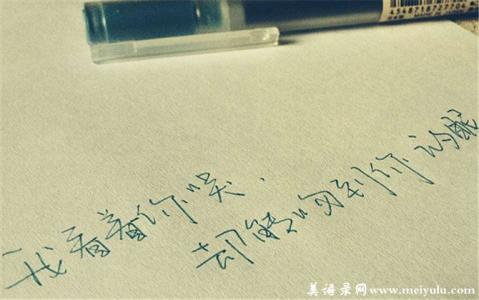 我看着你哭,
却能吻到你的眼
美语录网www.meiyulu.com